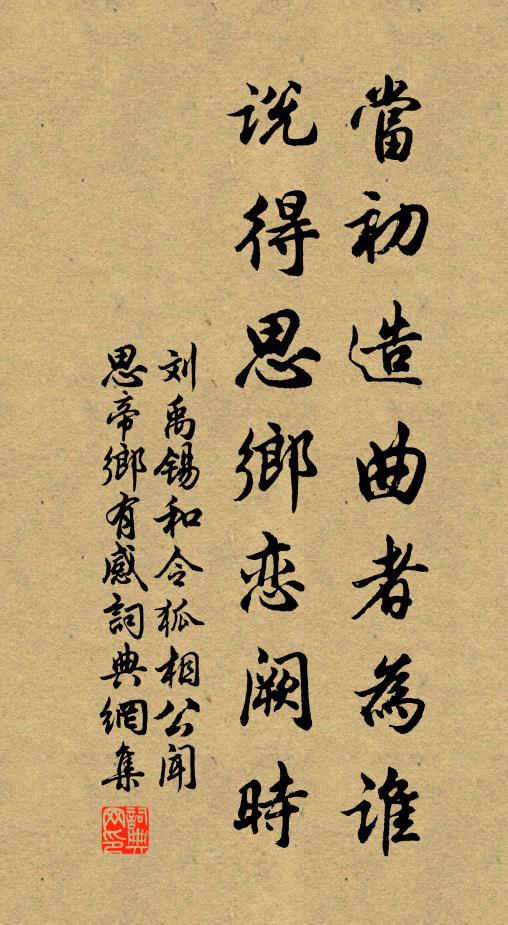 當初造曲者為誰
说得思鄉恋闕時
刘禹锡和令狐相公闻
思帝鄉有感詞典網集
詞典
网印